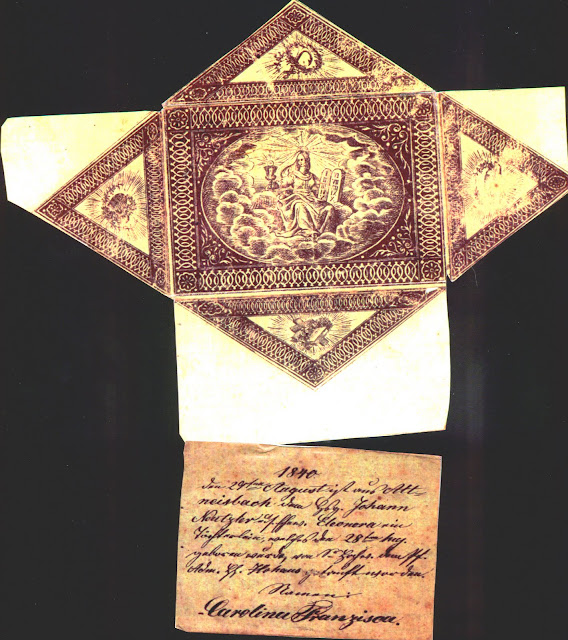 1840
den 29ten August ist aus Alt=
neisbach dem Johann
Neutzler Eleonora ein
Töchterlein, welches den 28ten Aug.
geboren wurde, von dem
Adm. getauft worden.
Namen:
Carolina Franziska.